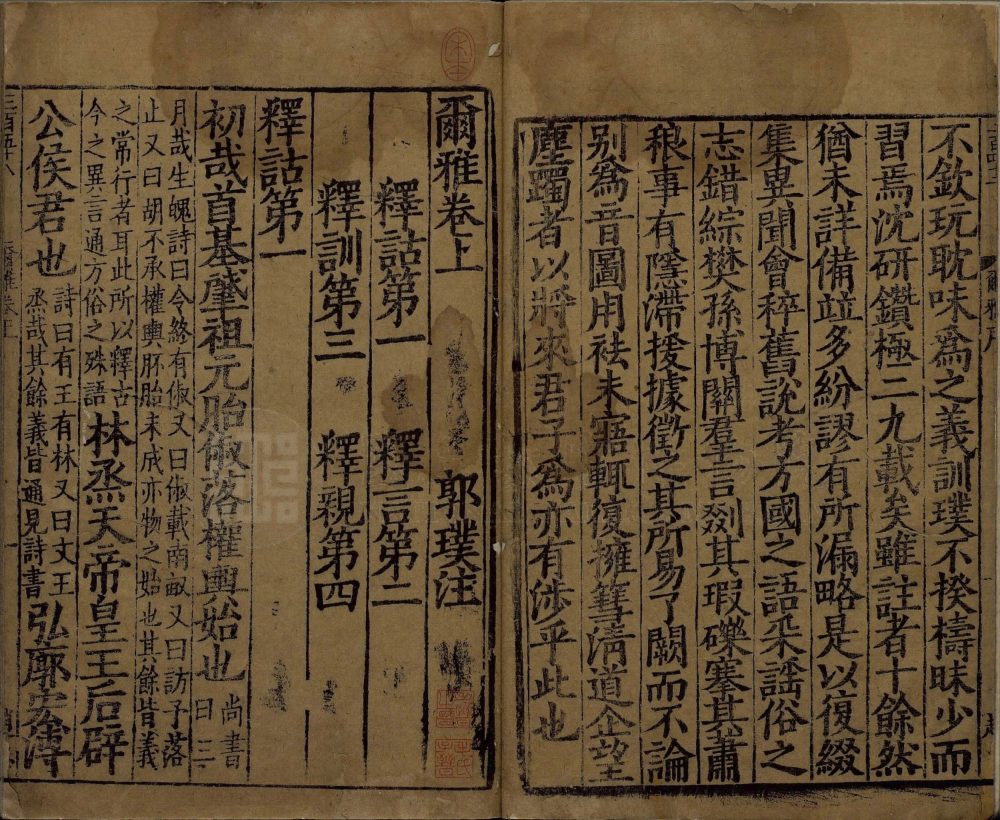 不欽玩耽味為之義訓璞不揆檮昧少而
習焉沈研鑽極二九載矣雖註者十餘然
猶未詳備並多紛謬有所漏略是以復綴
集異聞會稡舊說考方國之語采謡俗之
志錯綜樊孫博關群言剟其瑕礫搴其蕭
稂事有隱滯援據徵之其所易了闕而不論
別為音圖用祛未寤輒復擁篲清道企望
塵躅者以將來君子為亦有涉乎此也
爾雅序
爾雅卷上 郭璞注
釋詁第一 釋言第二
釋訓第三 釋親第四
釋詁第一
初哉首基肇祖元胎俶落權輿始也 尚書曰三
月哉生魄詩曰令終有俶又曰俶載南畝又曰訪予落
止又曰胡不承權輿胚胎未成亦物之始也其餘皆義
之常行者耳此所以釋古
今之異言通方俗之殊語 林烝天帝皇王后辟
公侯君也 詩曰有王有林又曰文王
烝哉其餘義皆通見詩書 弘廓宏溥
爾雅卷上 一